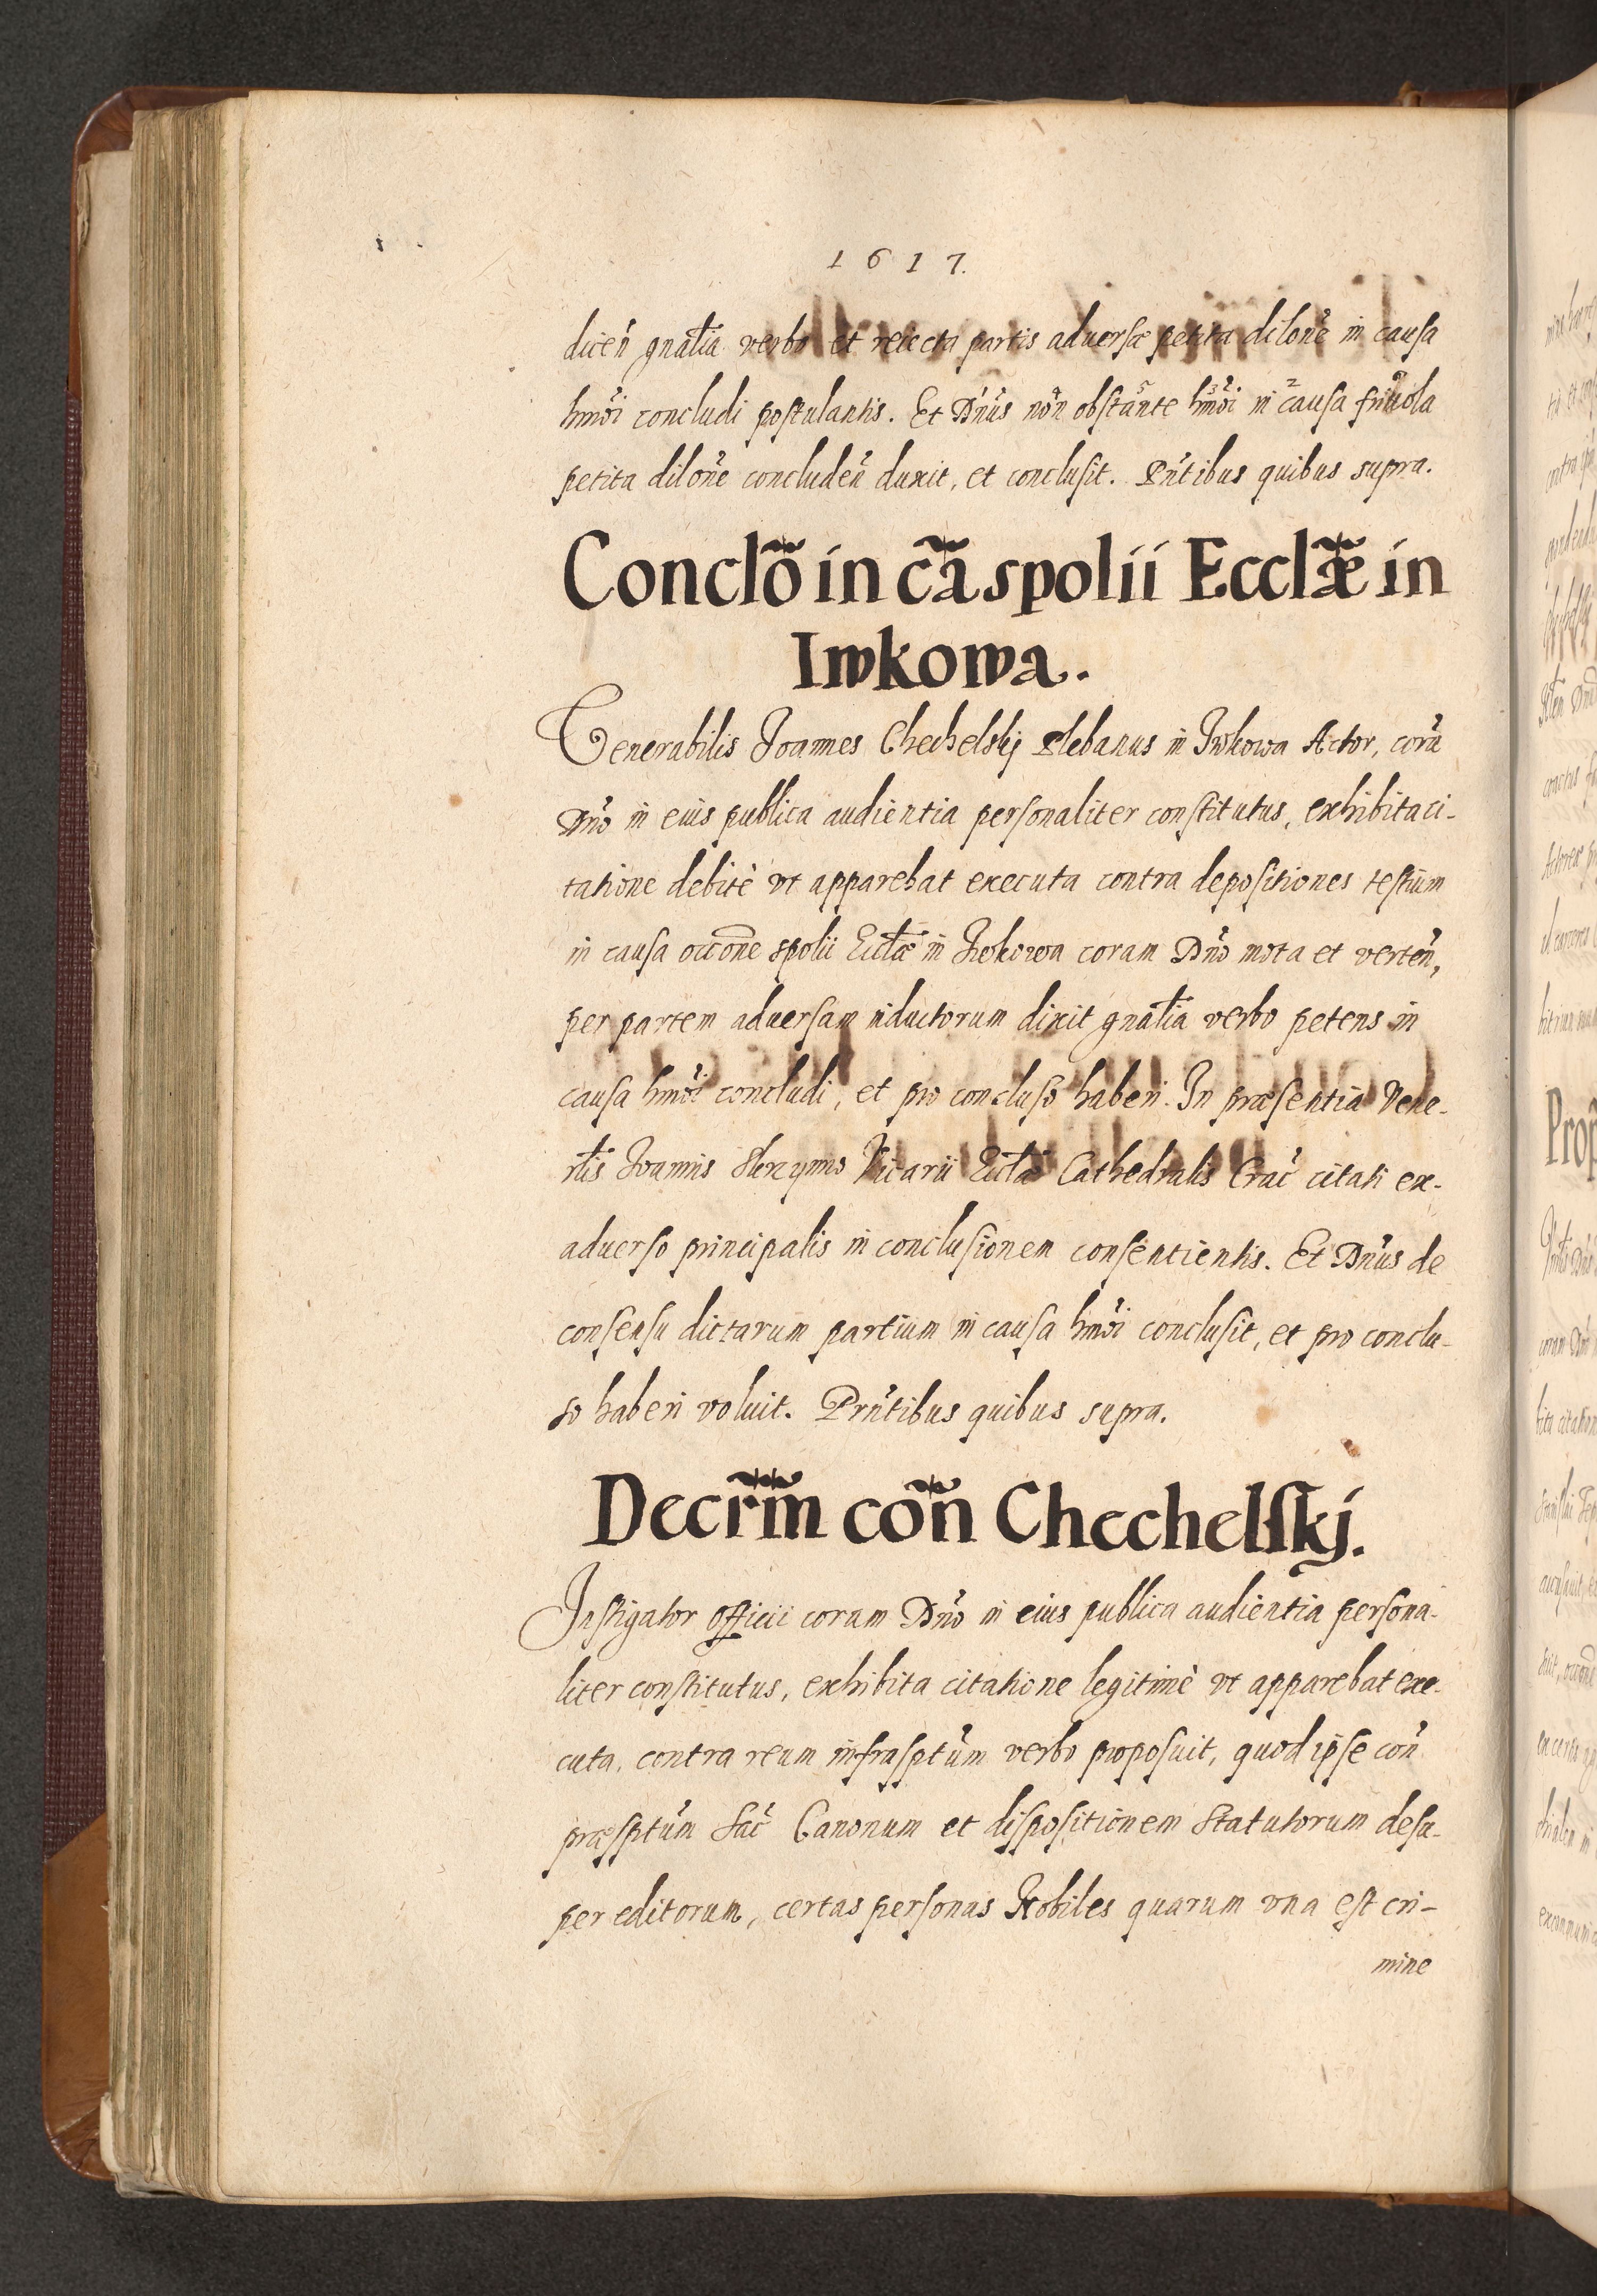 1617.
diceñ gnãlia verbo et reiecta partis aduersæ petita dilõne in causa
hmõi concludi postulantis. Et Dñus nõn obstãnte hmõi in causa friuola
petita dilõne concludeñ duxit, et conclusit. Pñtibus quibus supra.
Conclõ in cã spolii Ecclæ̃ in
Iwkowa.
Venerabilis Joannes Chechelskj Plebanus in Iwkowa Actor, corã
Dño in eius publica audientia personaliter constitutus, exhibita ci-
tatione debitè vt apparebat executa contra depositiones testium
in causa occõne spolii Ecclæ̃ in Iwkowa coram Dño mota et verteñ,
per partem aduersam inductorum dixit gnãlia verbo petens in
causa hmõi concludi, et pro concluso haberi. In præsentia Vene-
rlis Joannis Vicarii Ecclæ̃ Cathedralis Crac̃ citati ex-
aduerso principalis in conclusionem consentientis. Et Dñus de
consensu dictarum partium in causa hmõi conclusit, et pro conclu-
so haberi voluit. Prñtibus quibus supra.
Decrm̃ cõn Chechelskj.
Instigator Officii coram Dño in eius publica audientia persona-
liter constitutus, exhibita citatione legitimè vt apparebat exe-
cuta, contra reum infrasptũm verbo proposuit, quod ipse coñ
præsptũm Sac̃ Canonum et dispositionem Statutorum desu-
per editorum, certas personas Nobiles quarum vna est cri-
mine